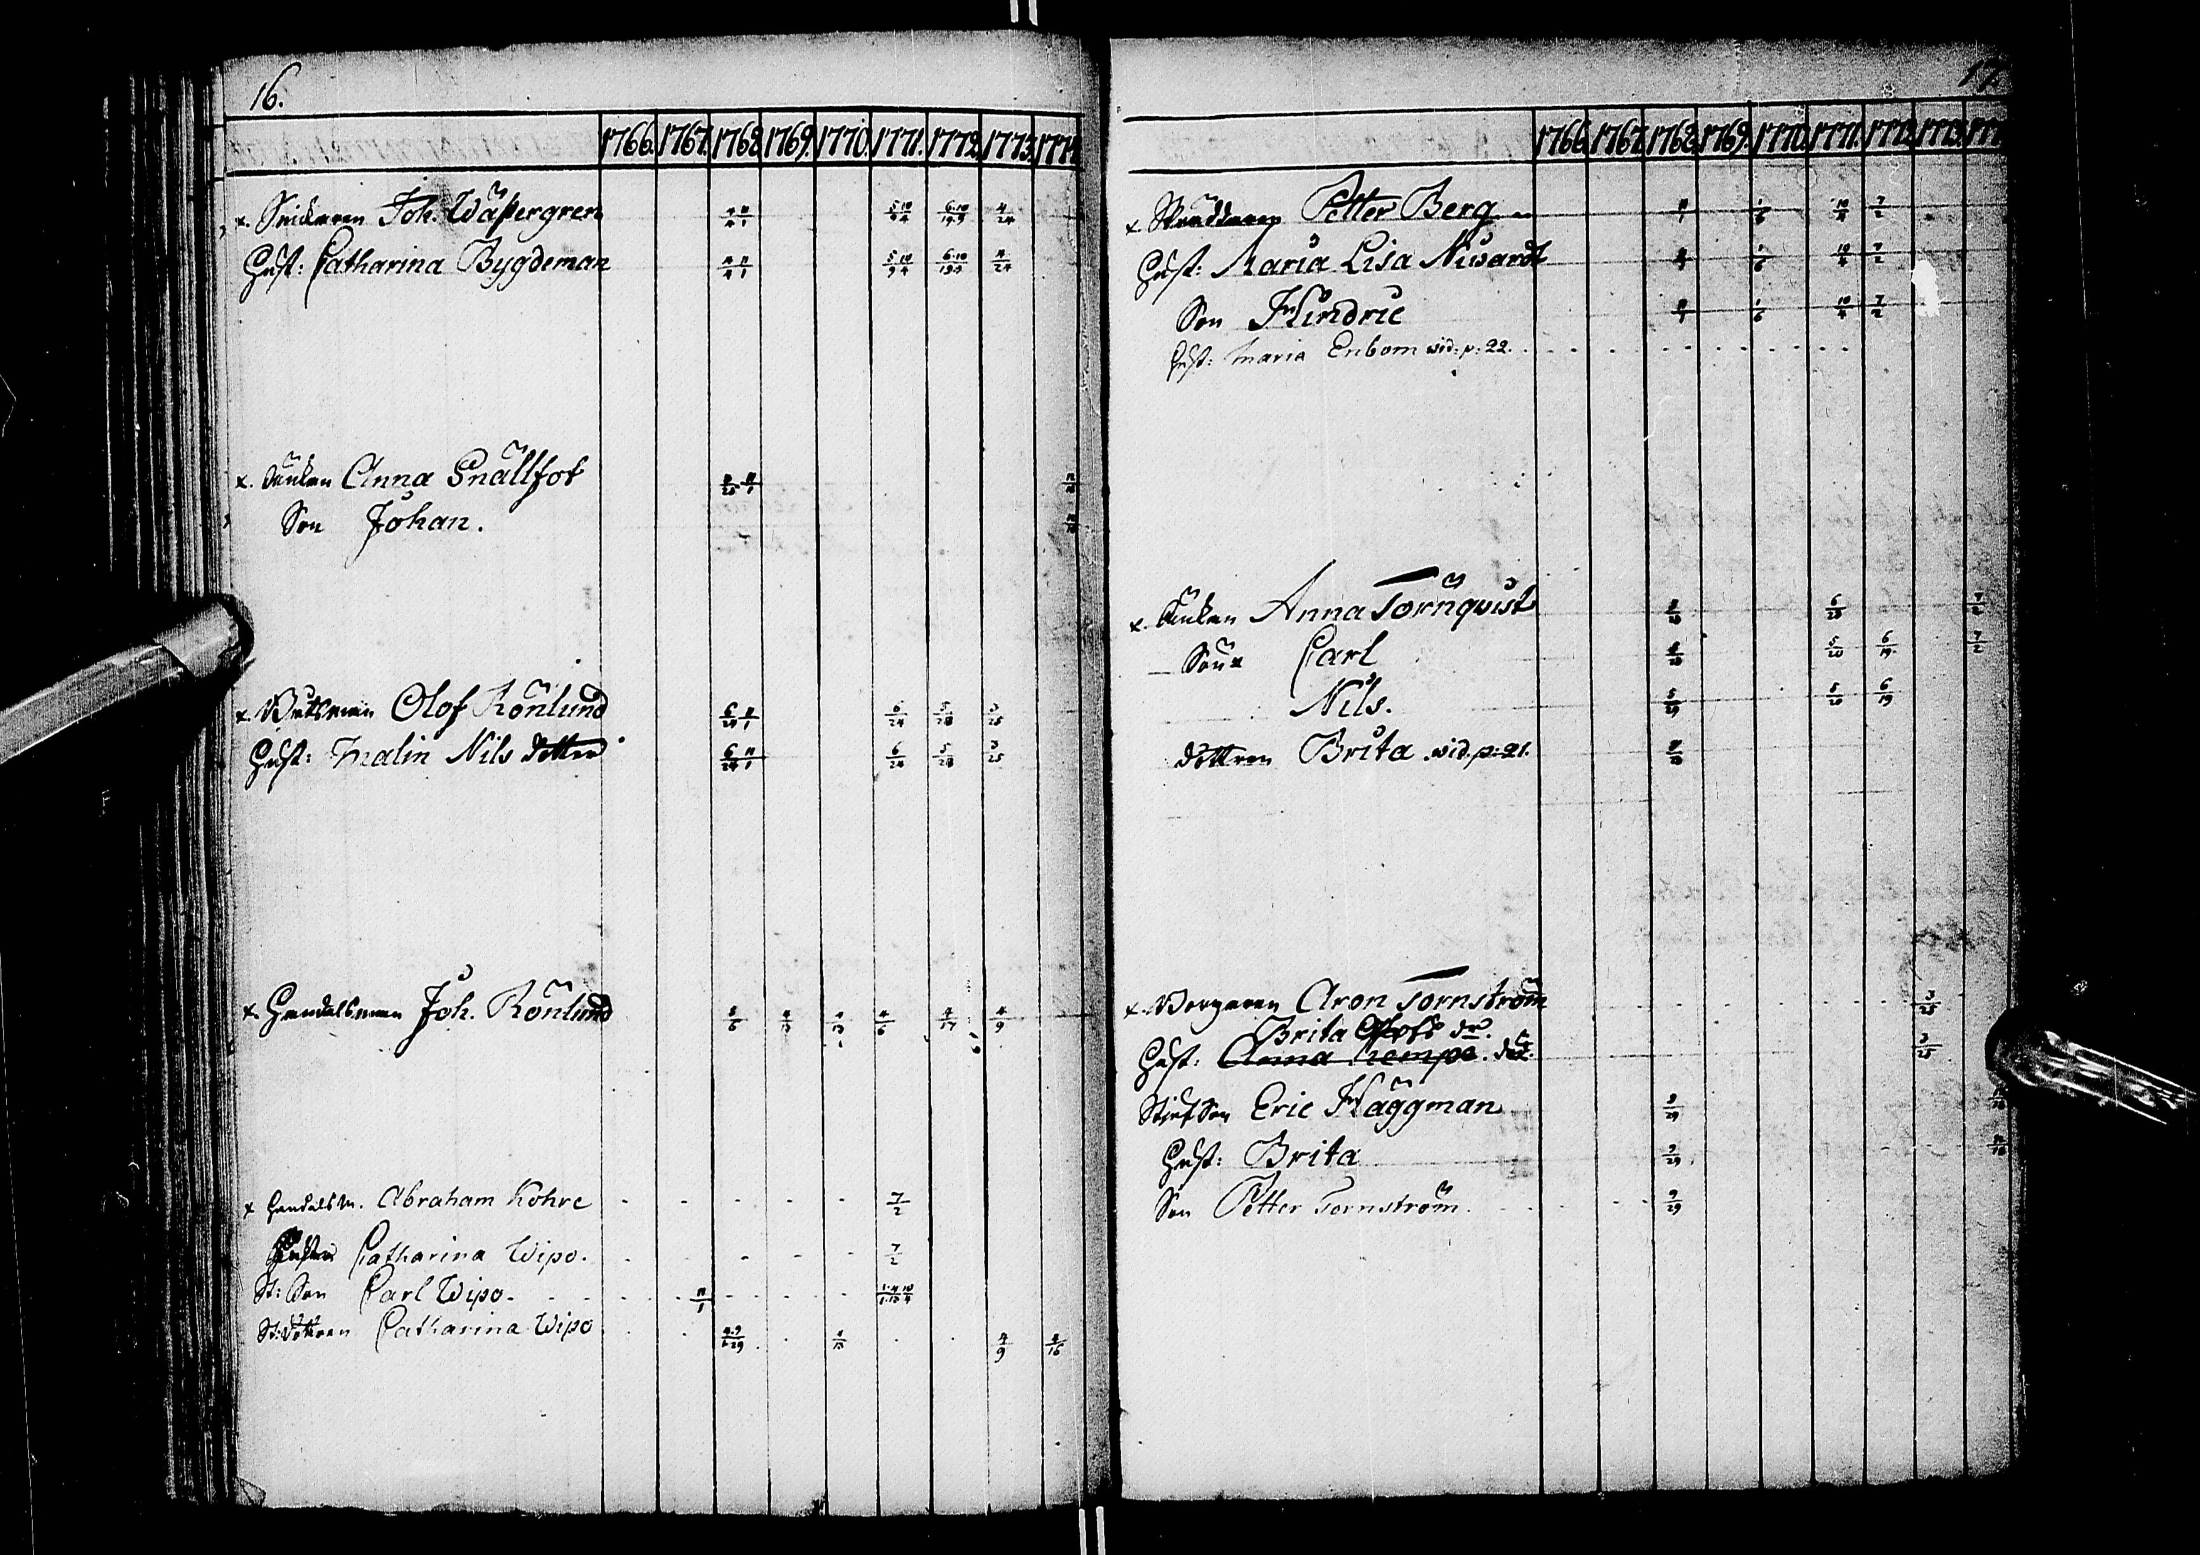 16.
1766. 1767. 1768. 1769. 1770. 1771. 1772. 1773. 1774
x. Snickaren Joh. Wäßtergren 5.10 6.10 4/24
Hust: Catharina Bygdeman 5.10 6.10 4/24
x. Änkan Anna Snällfot
Son Johan.
x. Båtsman Olof Rönlund 6/24 11/1 6/24 5/28 3/25
Hust: Malin Nils dotter 6/24 11/1 6/24 5/28 3/25
x. Handelsman Joh. Rönlund 4/13 4/17 4/9
x Handelsm. Abraham Kohre 7/2
Hustru Catharina Wipo. 7/2
St: Son Carl Wipo. 11/1
St: Dottren Catharina Wipo 4/9 4/16
17.
1766. 1767. 1768. 1769. 1770. 1771. 1772. 1773. 177
x Petter Berg 11/1 1/6 10/4 7/2
Hust: Maria Lisa Niwardt 1/6 10/4 7/2
Son Hindric 11/1 1/6 10/4 7/2
Hust: Maria Enbom vid. p: 22.
x. Änkan Anna Törnqvist 6/23 7/2
Son Carl 5/20 6/19 7/2
Nils. 5/20 6/19
dottren Brita vid. p: 21.
x. Borgaren Aron Tornström 3/25
Brita Olofs dr.
Hust: Anna Kempe. 3/25
Stiufson Eric Häggman 9/29
Hust: Brita 9/29
Son Petter Tornström. 9/29